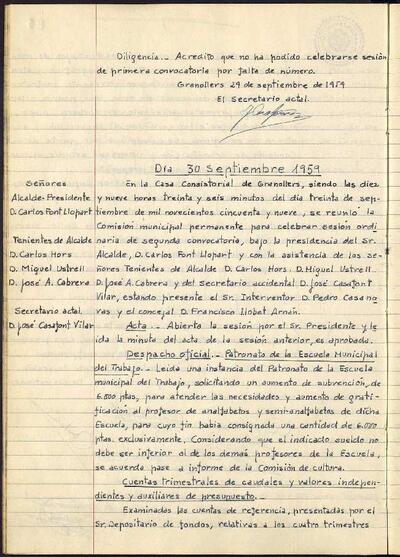 Diligencia.- Acredito que no ha podido celebrarse sesión
de primera convocatoria por falta de número.
Granollers 29 de septiembre de 1959
El Secretario actal.
Día 30 Septiembre 1959
Señores
Alcalde-Presidente
D. Carlos Font Llopart
Tenientes de Alcalde
D. Carlos Hors
D. Miguel Ustrell
D. José A. Cabrera
Secretario actal.
D. José Casafont Vilar
En la Casa Consistorial de Granollers, siendo las diez
y nueve horas treinta y seis minutos del día treinta de sep-
tiembre de mil novecientos cincuenta y nueve, se reunió la
Comisión municipal permanente para celebrar sesión ordi
naria de segunda convocatoria, bajo la presidencia del Sr.
Alcalde, D. Carlos Font Llopart y con la asistencia de los se-
ñores Tenientes de Alcalde D. Carlos Hors. D. Miguel Ustrell
D. José A. Cabrera y del Secretario accidental D. José Casafont
Vilar, estando presente el Sr. Interventor D. Pedro Casano
vas y el concejal D. Francisco Llobet Arnán.
Acta.- Abierta la sesión por el Sr. Presidente y le
ida la minuta del acta de la sesión anterior, es aprobada.
Despacho oficial.- Patronato de la Escuela Municipal
del Trabajo.- Leida una instancia del Patronato de la Escuela
municipal del Trabajo, solicitando un aumento de subvención, de
6.500 ptas, para atender las necesidades y aumento de grati-
ficación al profesor de analfabetos y semi-analfabetos de dicha
Escuela, para cuyo fin había consignada una cantidad de 6.000
ptas. exclusivamente, Considerando que el indicado sueldo no
debe ser inferior al de los demás profesores de la Escuela,
se acuerda pase a informe de la Comisión de cultura.
Cuentas trimestrales de caudales y valores indepen-
dientes y auxiliares de presupuesto.-
Examinadas las cuentas de referencia, presentadas por el
Sr. Depositario de fondos, relativas a los cuatro trimestres